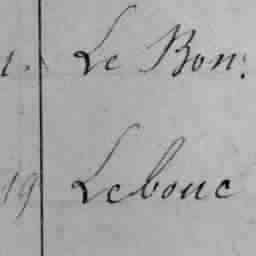 1. Le Bon.
19 Lebouc